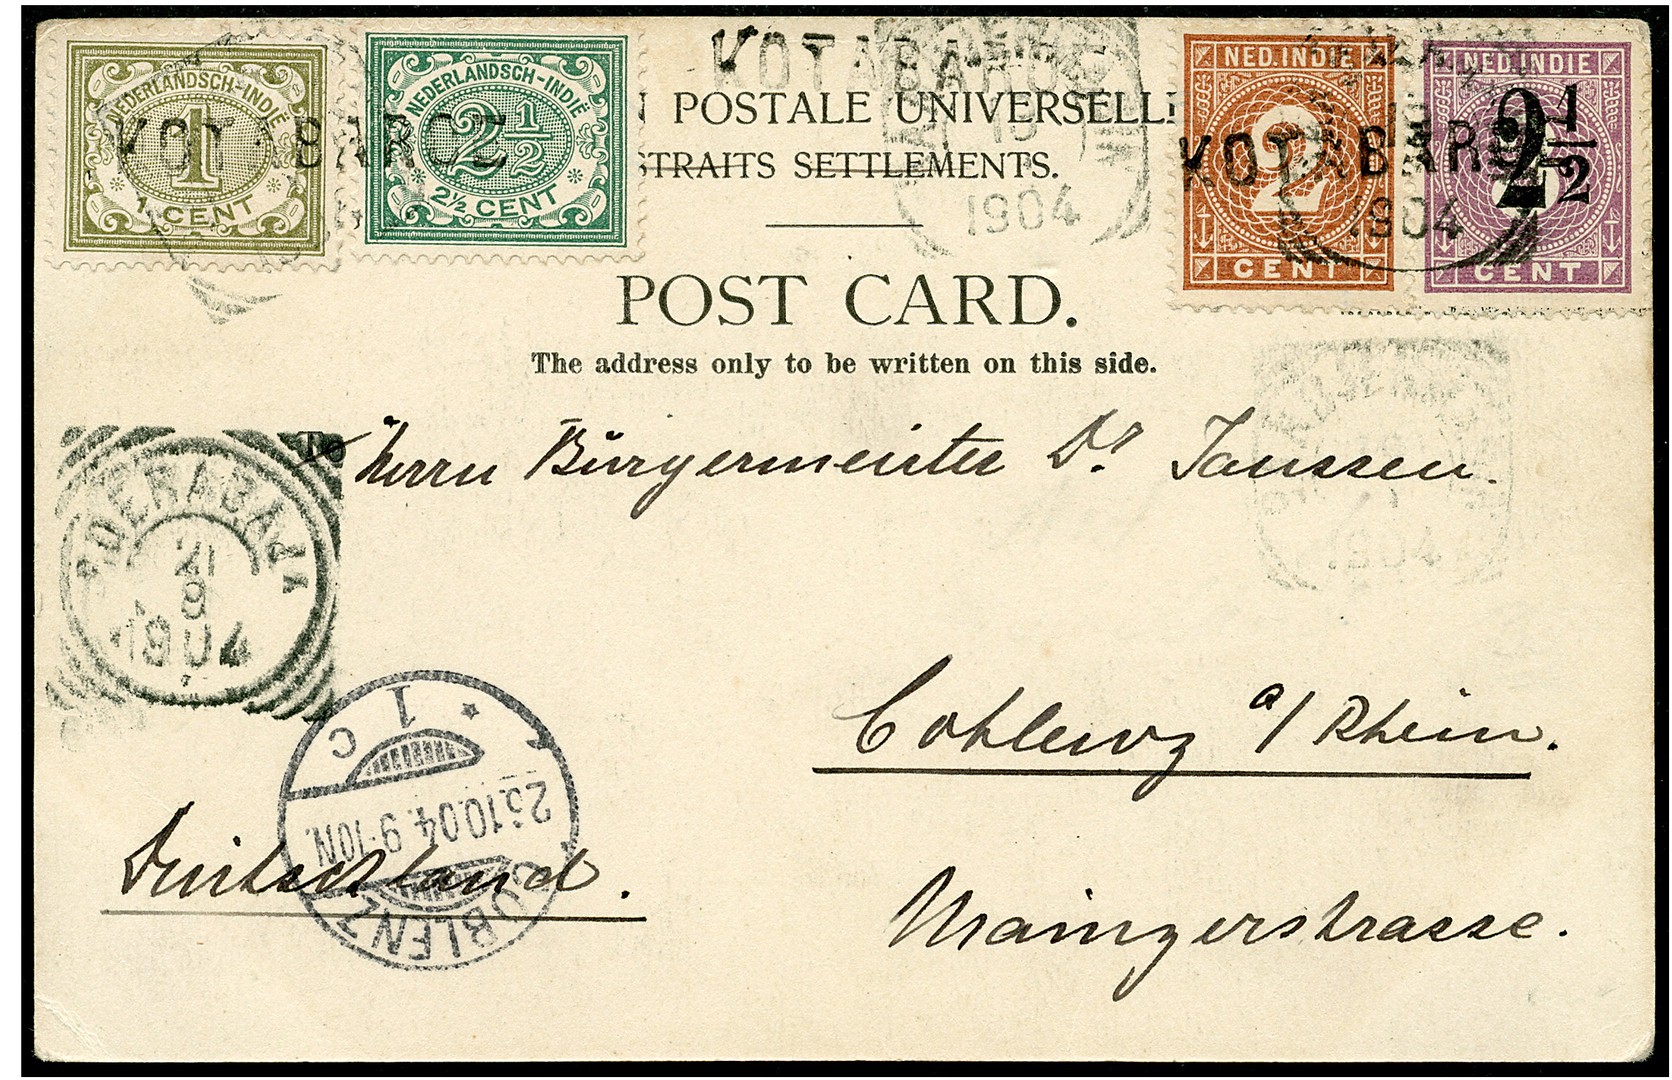 NEDERLANDSCH-INDIË
1
1 CENT
NEDERLANDSCH-INDIË
2 1/2
2½ CENT
KOTABAROE
KOTABAROE
N POSTALE UNIVERSELLE
STRAITS SETTLEMENTS.
1904
NED. INDIE
2
CENT
NED. INDIE
2 1/2
CENT
KOTABAROE
1904
POST CARD.
The address only to be written on this side.
To Herrn Bürgermeister Dr Janssen.
1904
SOERABAJA
21
9
1904
Coblenz a/Rhein.
Deutschland.
Mainzerstrasse.
COBLENZ
25.10.04. 9-10N.
1 C